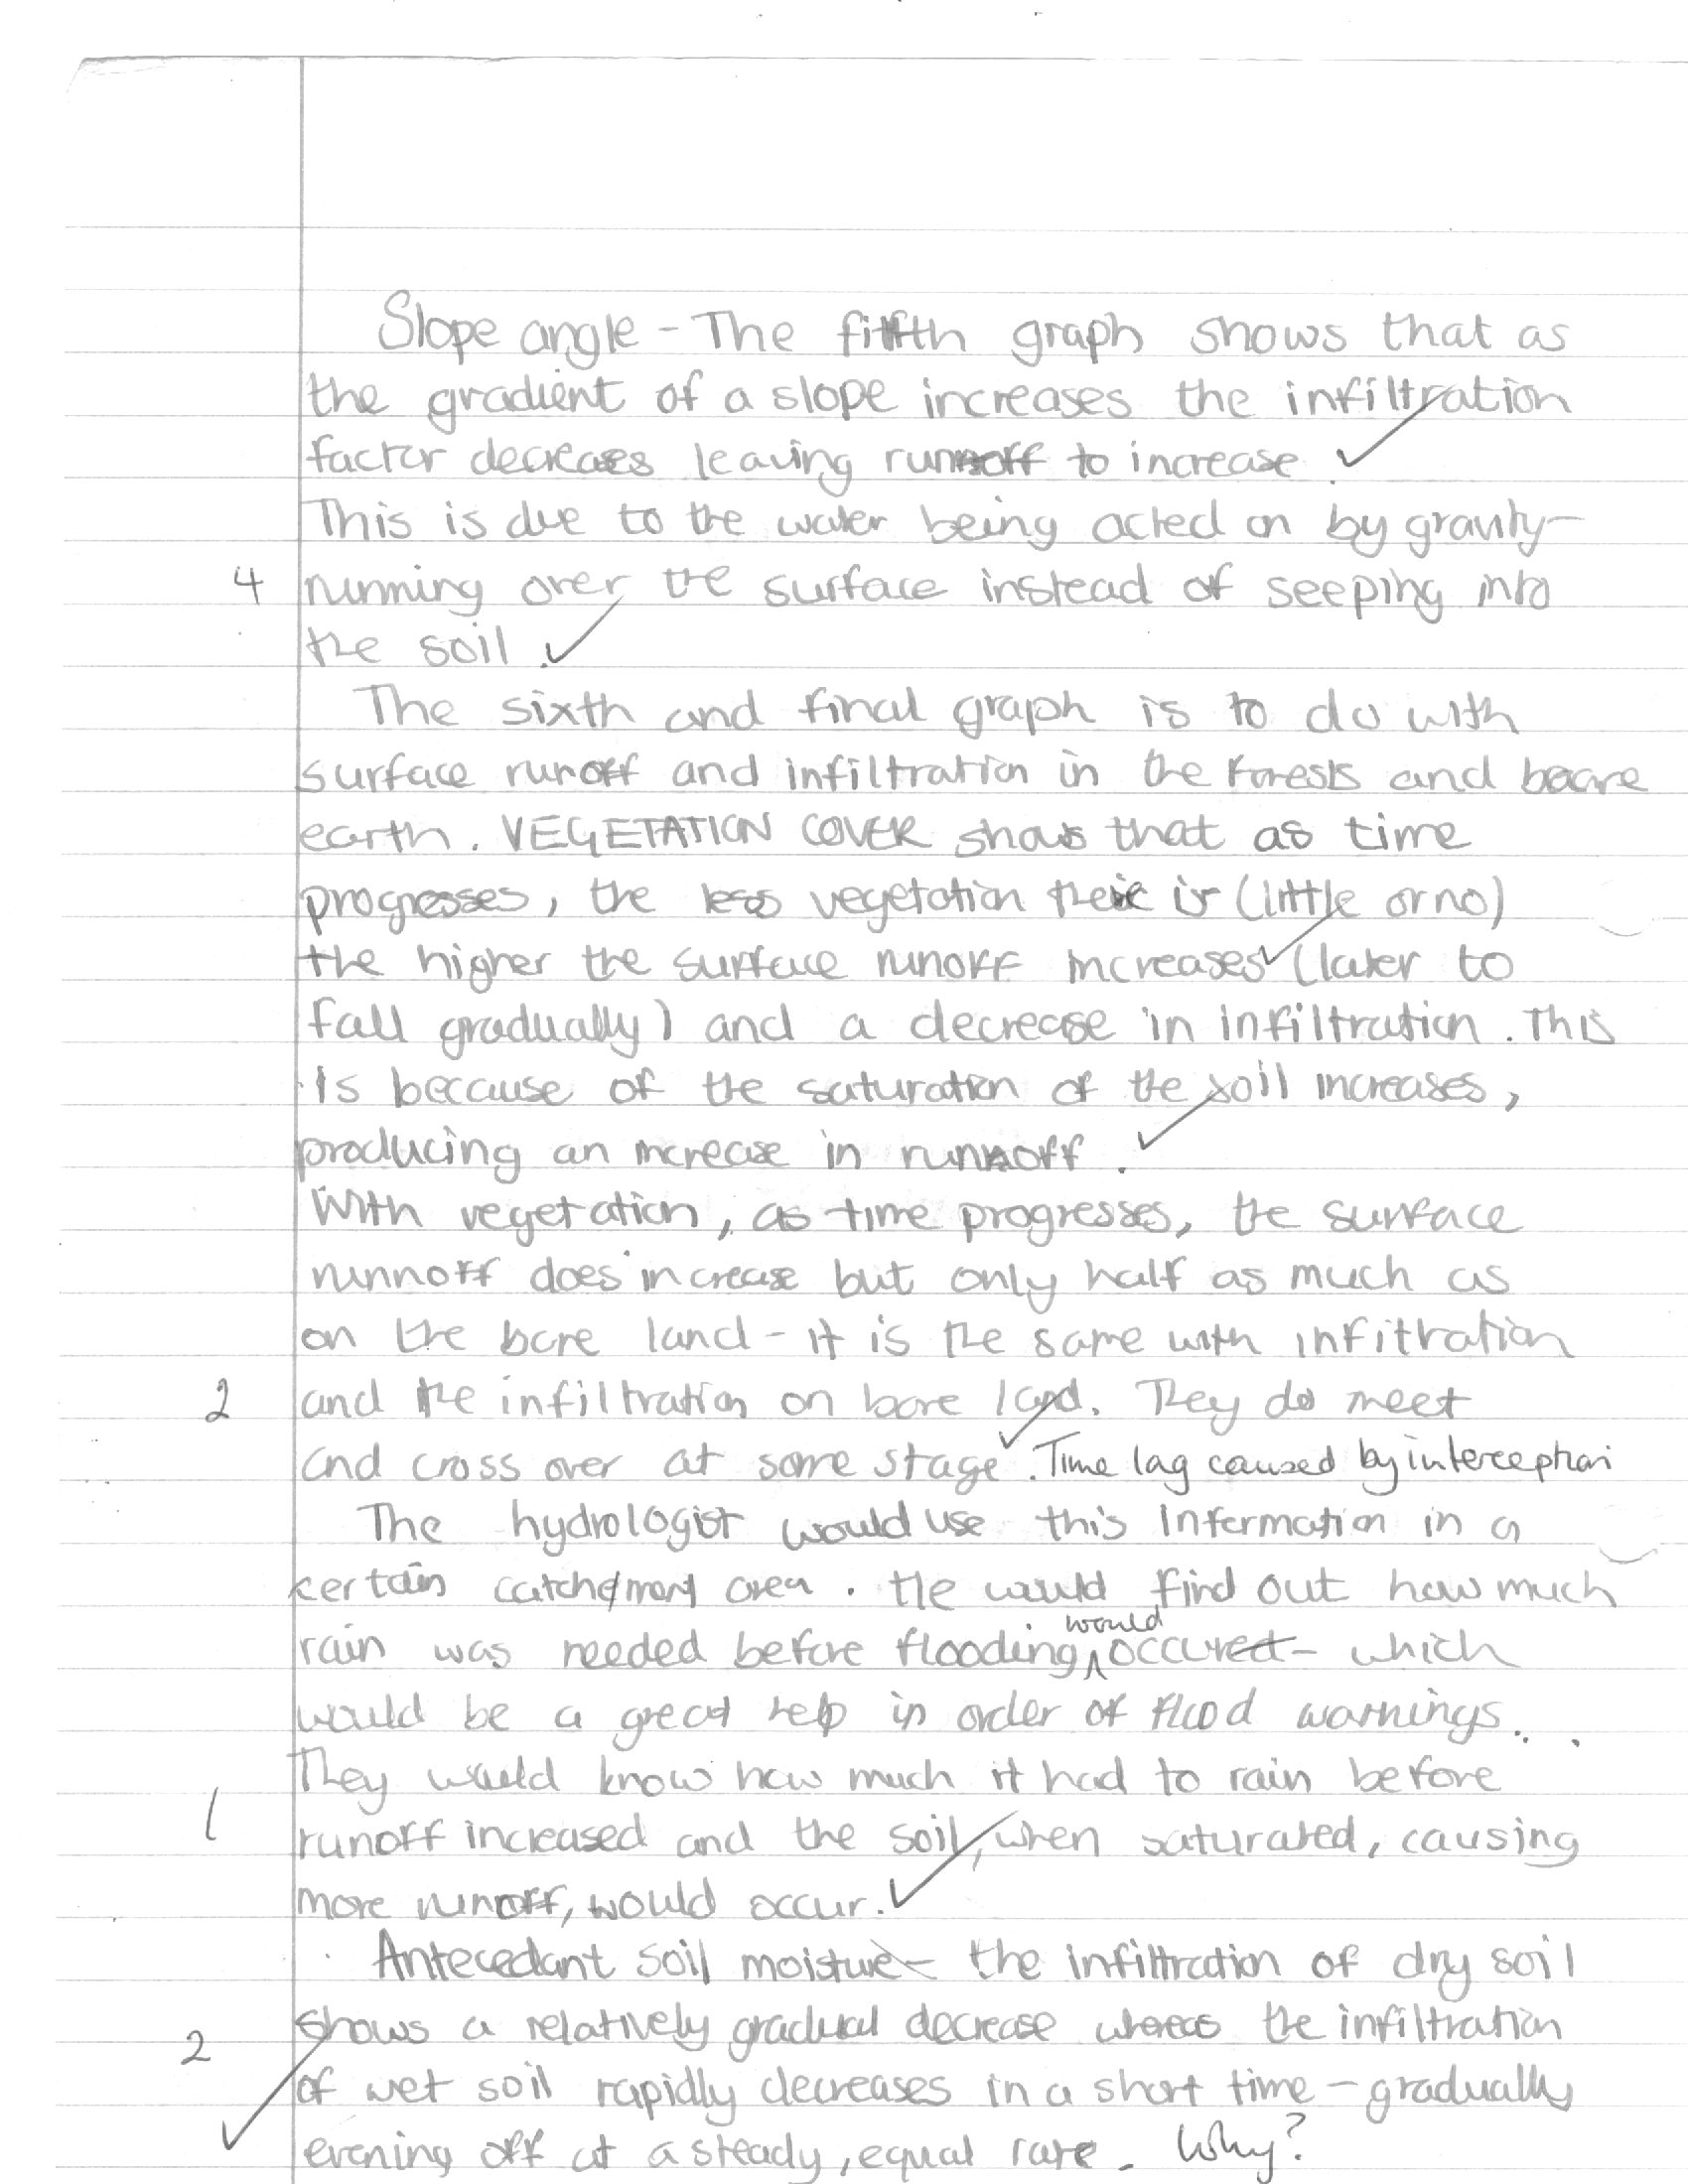 Slope angle - The fifth graph shows that as
the gradient of a slope increases the infiltration
factor decreases leaving runoff to increase
This is due to the water being acted on by gravity-
4 running over the surface instead of seeping into
the soil.
The sixth and final graph is to do with
surface runoff and infiltration in the Forests and beare
earth. VEGETATION COVER shows that as time
progresses, the less vegetation there is (little or no)
the higher the surface runoff increases (later to
fall gradually) and a decrease in infiltration. This
is because of the saturation of the soil increases,
producing an increase in runnoff.
With vegetation, as time progresses, the surface
runnoff does increase but only half as much as
on the bare land - it is the same with infitration
2 and the infiltration on bare land. They do meet
and cross over at some stage. Time lag caused by interception
The hydrologist would use this information in a
certain catchment area. He would find out how much
rain was needed before flooding would occured - which
would be a great help in order of flood warnings.
They would know how much it had to rain before
1 runoff increased and the soil, when saturated, causing
more runoff, would occur.
Antecedant soil moisture - the infiltration of dry soil
2 shows a relatively gradual decrease whereas the infiltration
of wet soil rapidly decreases in a short time - gradually
evening off at a steady, equal rate. Why?